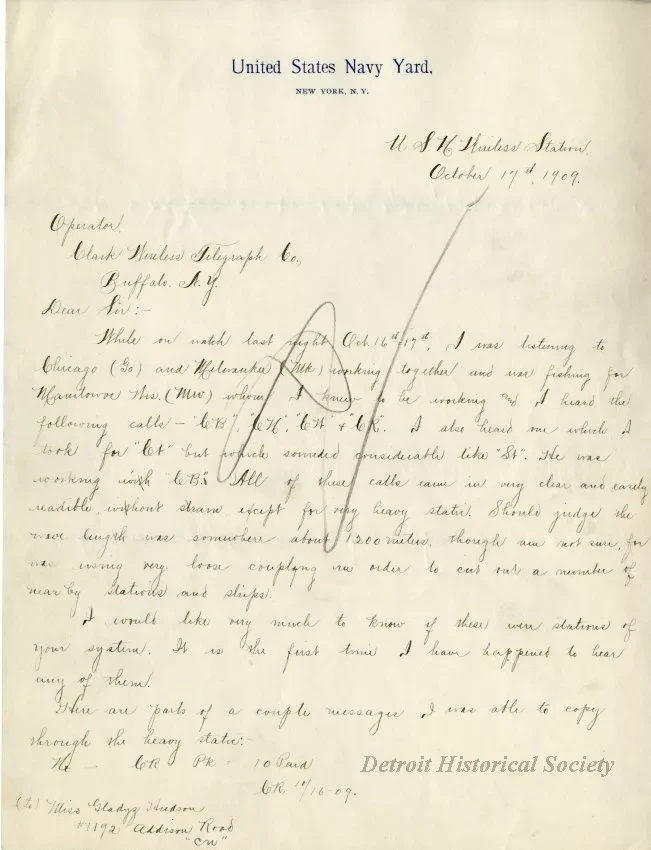 United States Navy Yard,
NEW YORK, N.Y.
U S N Wireless Station,
October 17th, 1909.
Operator,
Clark Wireless Telegraph Co.,
Buffalo, N.Y.
Dear Sir:-
While on watch last night Oct. 16th-17th, I was listening to
Chicago (Go) and Milwaukee (Mk) working together and was fishing for
Manitowoc Wis. (Mw.) whom I knew to be working and I heard the
following calls - "CB", "CH", "CW" & "CK". I also heard one which I
took for "Ct" but which sounded considerable like "St". He was
working with "CB". All of these calls came in very clear and easily
readible, without strain except for very heavy static. Should judge the
wave length was somewhere about 1200 meters, though am not sure, for
was using very loose coupling in order to cut out a number of
near by stations and ships.
I would like very much to know if these were stations of
your system. It is the first time I have happened to hear
any of them.
Here are parts of a couple messages I was able to copy
through the heavy static:-
CK PK - 10 Paid
CK 10/16-09.
(To) Miss Gladyz Hudson
#1192 Addison Road
"CN"
Detroit Historical Society